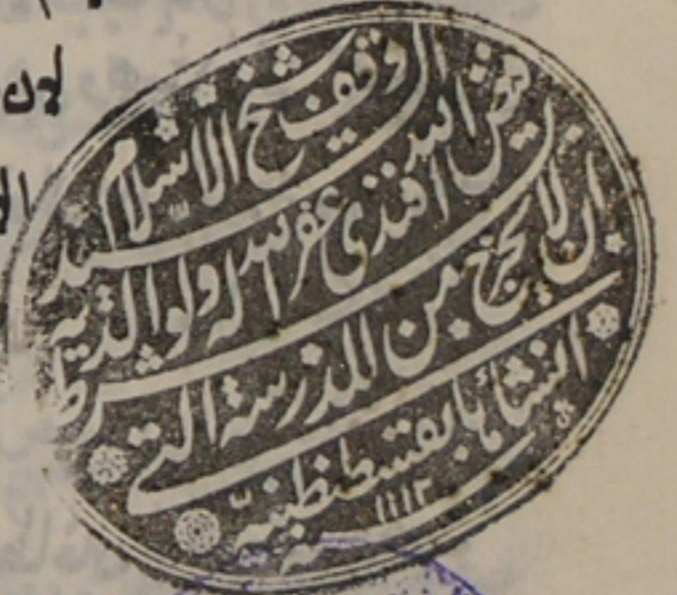 وقف شيخ الاسلام السيد
فيض الله افندى غفر الله له ولوالديه بشرط
ان لا يخرج من المدرسة التى
انشأها بقسطنطينية
سنة ١١١٢
لان